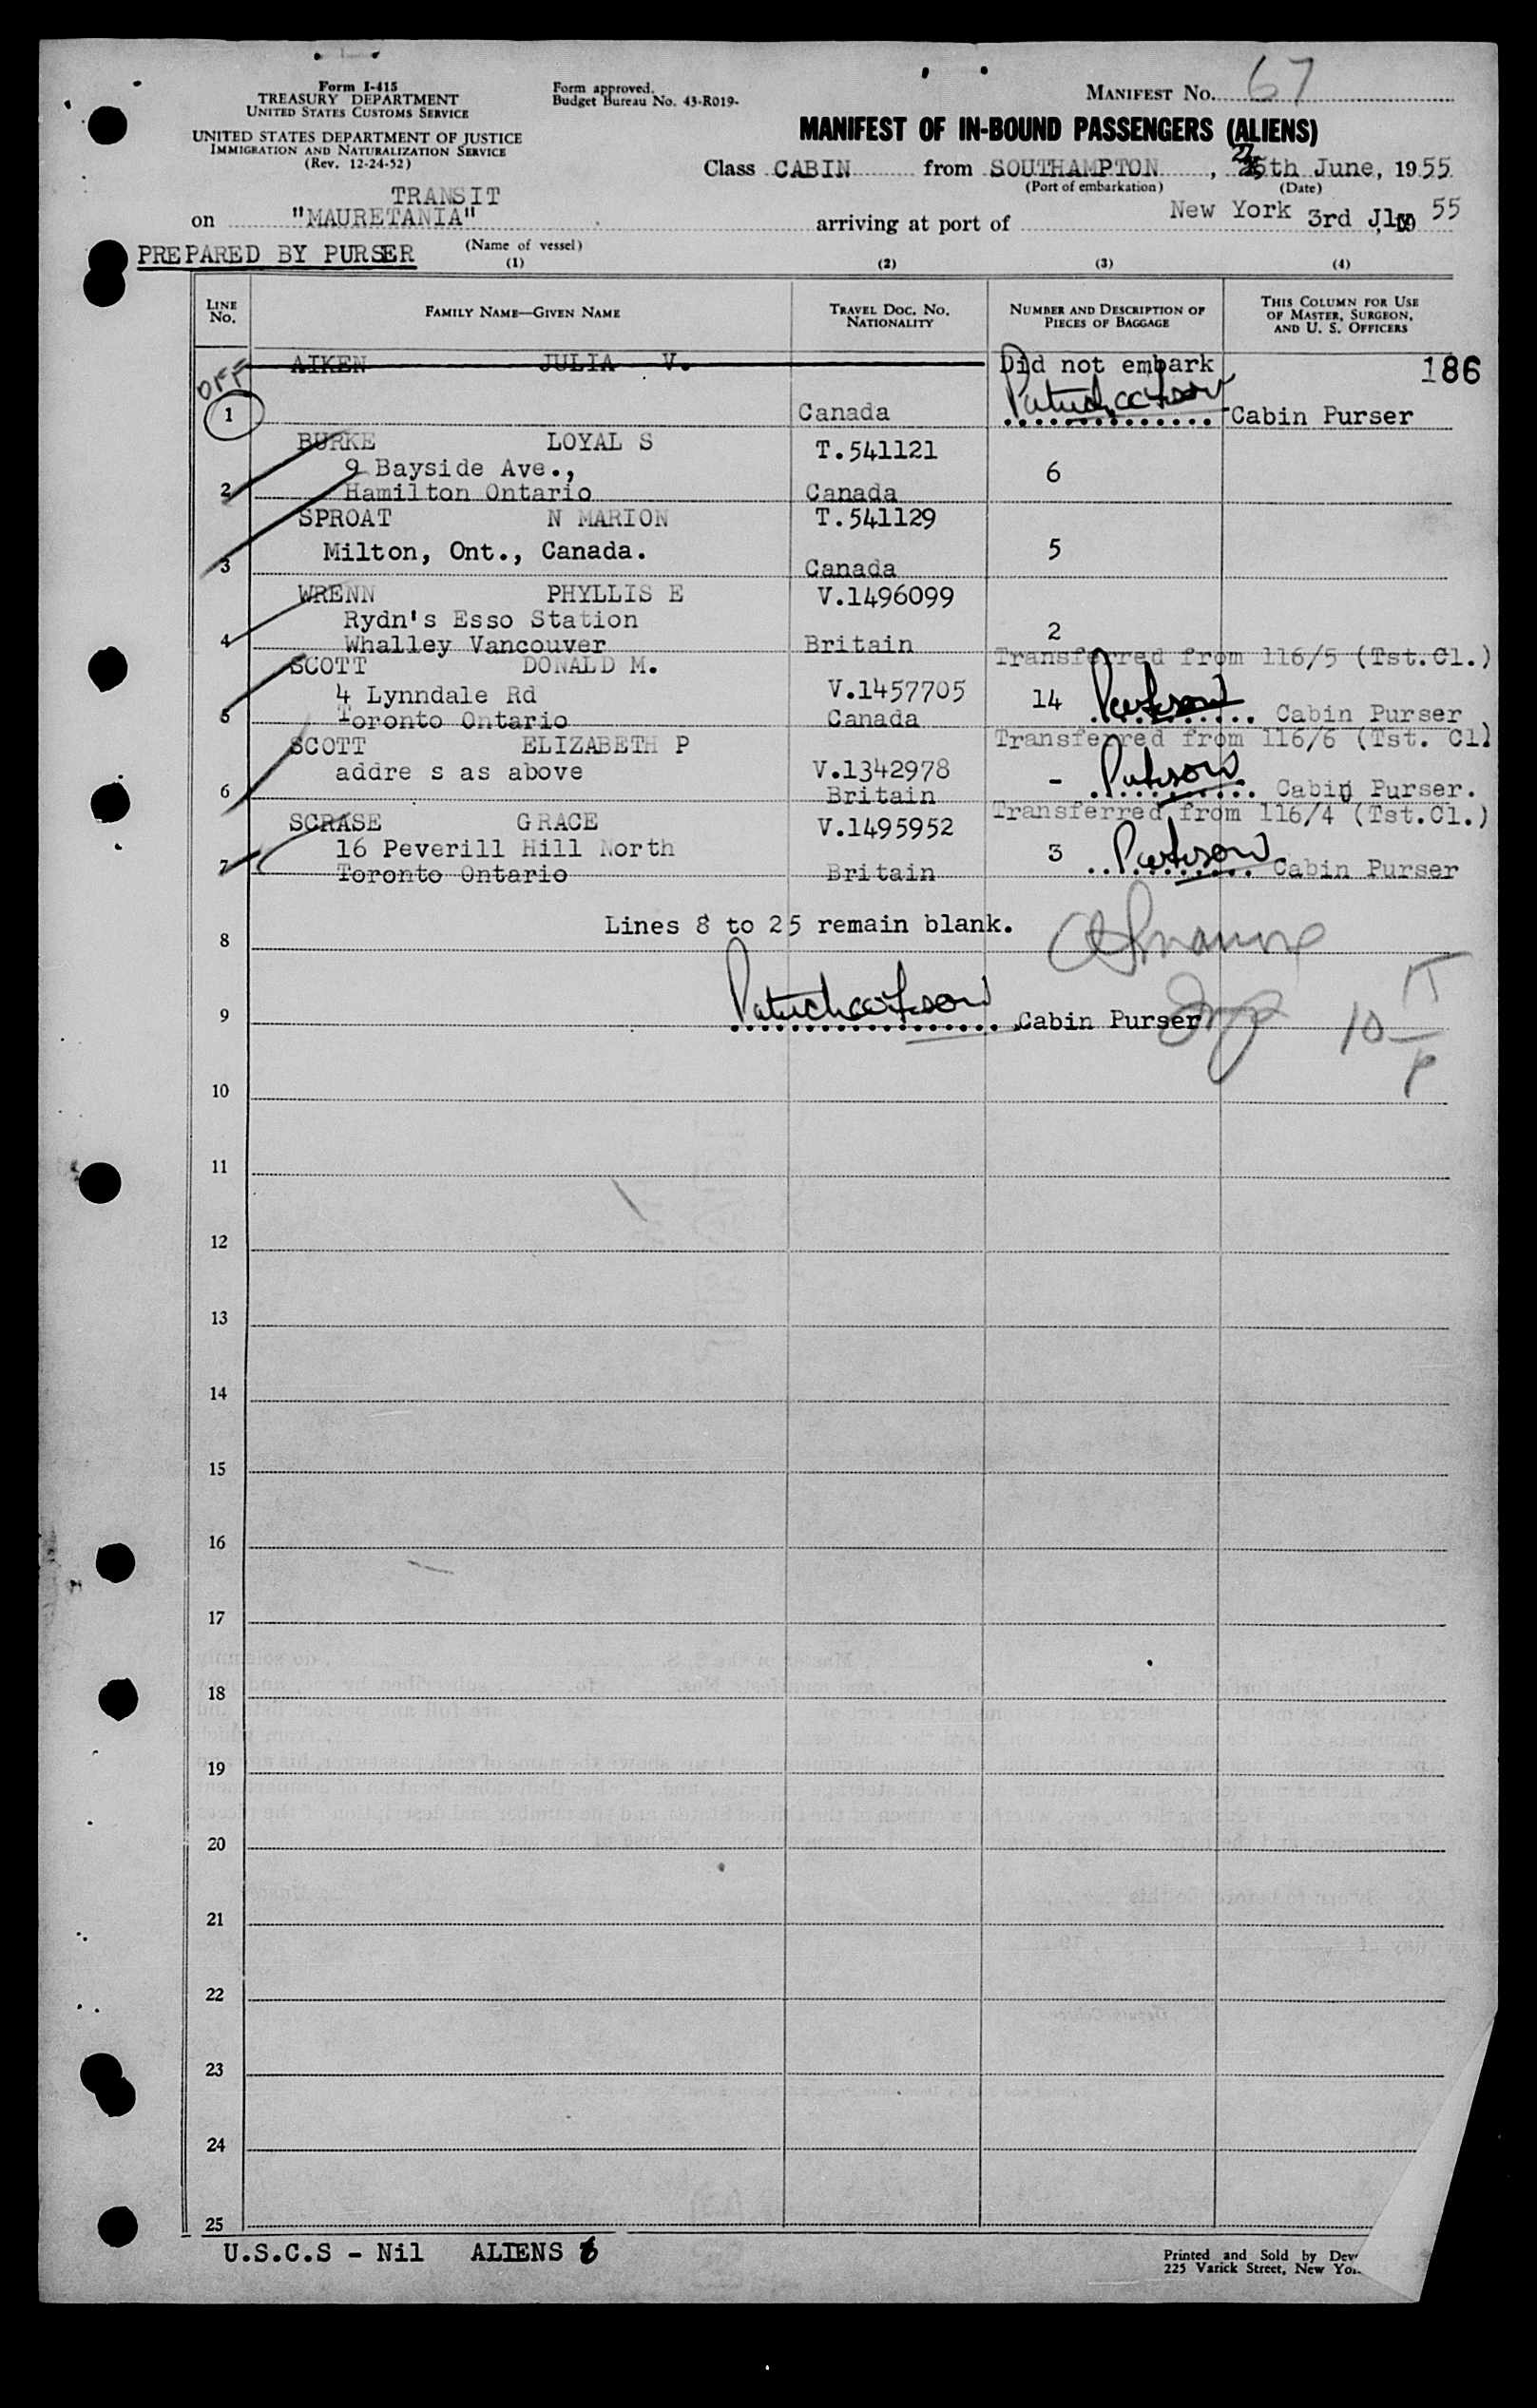 Form I-415
TREASURY DEPARTMENT
UNITED STATES CUSTOMS SERVICE
UNITED STATES DEPARTMENT OF JUSTICE
IMMIGRATION AND NATURALIZATION SERVICE
(Rev. 12-24-52)
Form approved.
Budget Bureau No. 43-R019-
MANIFEST NO. 67
MANIFEST OF IN-BOUND PASSENGERS (ALIENS)
Class CABIN from SOUTHAMPTON, th June, 1955
(Port of embarkation) (Date)
TRANSIT
on "MAURETANIA" arriving at port of New York 3rd Jly 55
(Name of vessel)
PREPARED BY PURSER
(1) (2) (3) (4)
LINE NO. FAMILY NAME—GIVEN NAME TRAVEL DOC. NO. NATIONALITY NUMBER AND DESCRIPTION OF PIECES OF BAGGAGE THIS COLUMN FOR USE OF MASTER, SURGEON, AND U. S. OFFICERS
OFF AIKEN JULIA V. Did not embark 186
1 Canada Cabin Purser
BURKE LOYAL S T.541121
9 Bayside Ave., 6
2 Hamilton Ontario Canada
SPROAT N MARION T.541129
Milton, Ont., Canada. 5
3 Canada
WRENN PHYLLIS E V.1496099
Rydn's Esso Station 2
4 Whalley Vancouver Britain
SCOTT DONALD M. Transferred from 116/5 (Tst.Cl.)
4 Lynndale Rd V.1457705 14
5 Toronto Ontario Canada Cabin Purser
SCOTT ELIZABETH P Transferred from 116/6 (Tst. Cl)
addre s as above V.1342978 -
6 Britain Cabin Purser.
SCRASE GRACE V.1495952 Transferred from 116/4 (Tst.Cl.)
16 Peverill Hill North 3
7 Toronto Ontario Britain Cabin Purser
Lines 8 to 25 remain blank.
8
9 Cabin Purser 10
10
11
12
13
14
15
16
17
18
19
20
21
22
23
24
25
U.S.C.S - Nil ALIENS 6
Printed and Sold by
225 Varick Street, New